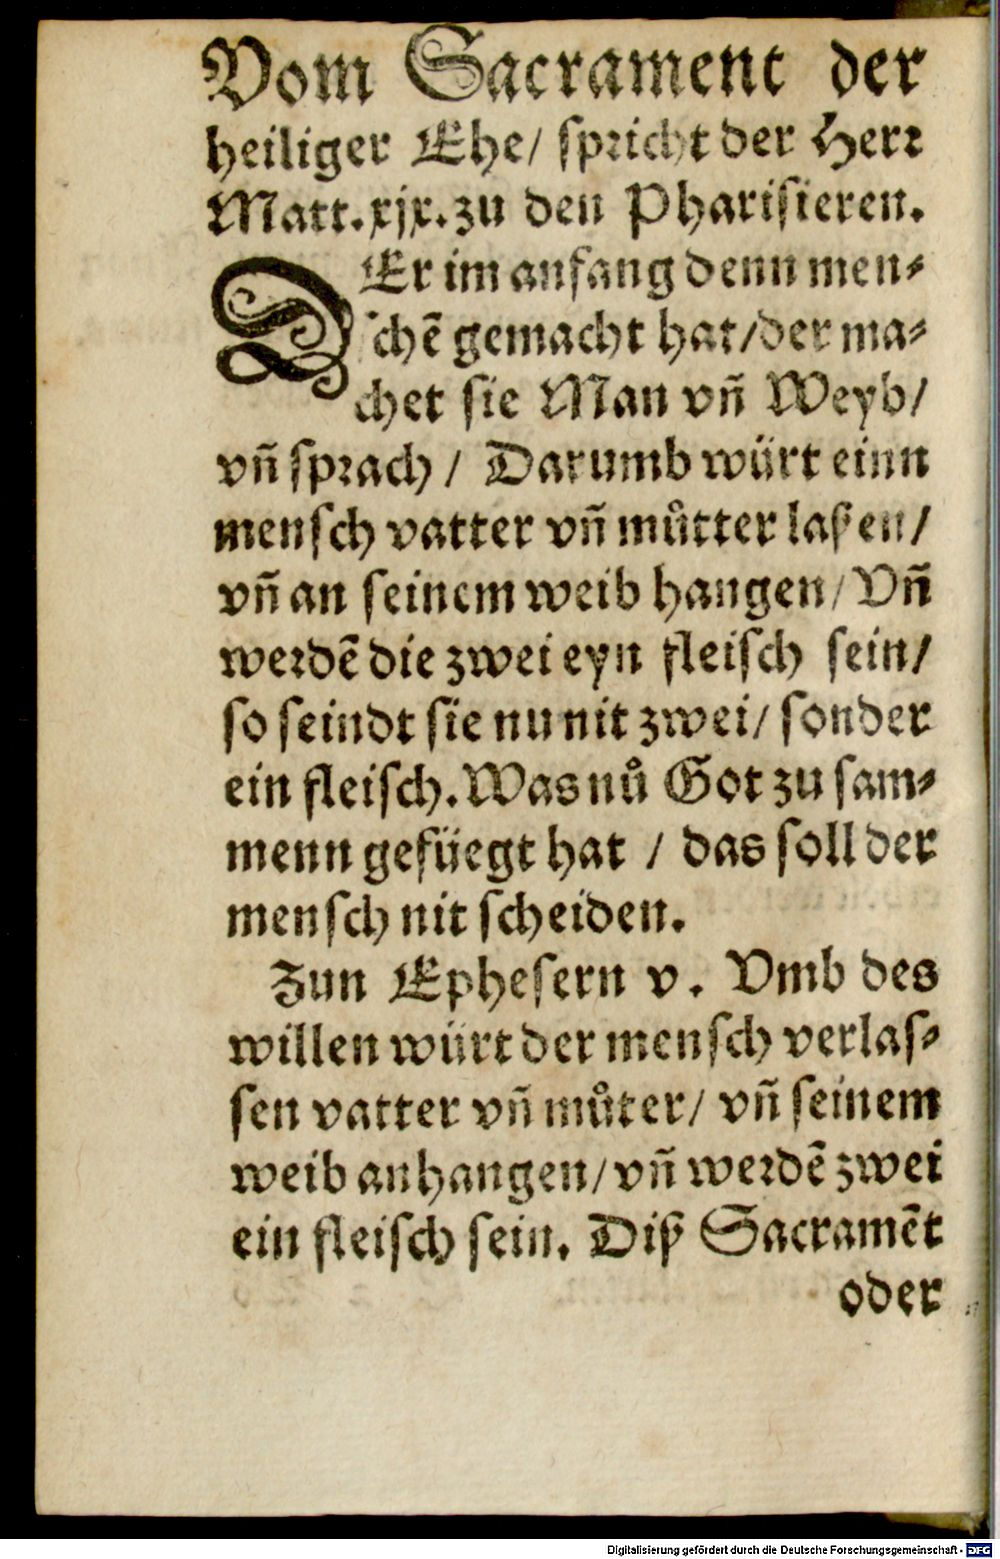 Vom Sacrament der
heiliger Ehe/ spricht der Herr
Matt.xjx.zu den Pharisieren.
DEr im anfang denn men⸗
schē gemacht hat/der ma⸗
chet sie Man vñ Weyb/
vñ sprach/ Darumb würt einn
mensch vatter vñ můtter laßen/
vñ an seinem weib hangen/Vñ
werdē die zwei eyn fleisch sein/
so seindt sie nu nit zwei/ sonder
ein fleisch.Was nů Got zu sam⸗
menn gefüegt hat / das soll der
mensch nit scheiden.
Zun Ephesern v. Vmb des
willen würt der mensch verlas⸗
sen vatter vñ můter/ vñ seinem
weib anhangen/vñ werdē zwei
ein fleisch sein. Diß Sacramēt
oder
Digitalisierung gefördert durch die Deutsche Forschungsgemeinschaft - DFG